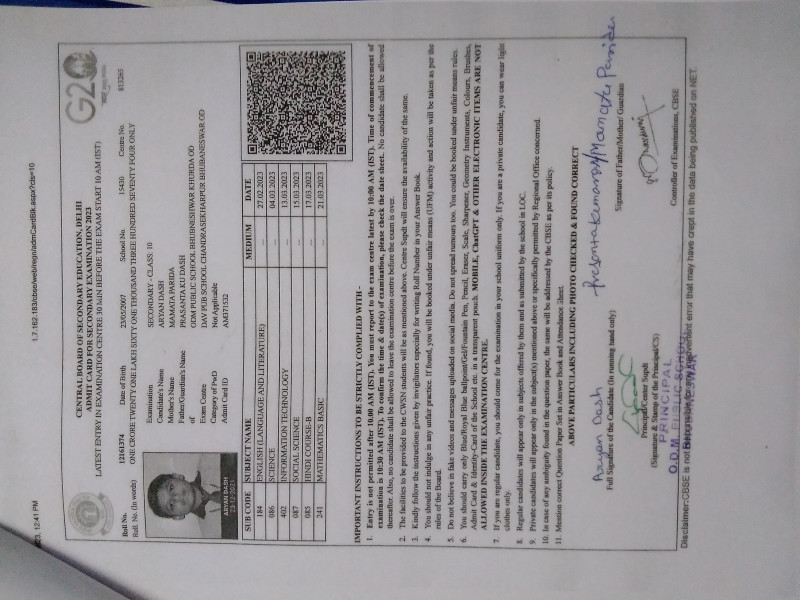 1.7.162.183/cbse/web/regn/admCardBlk.aspx?cls=10
023, 12:41 PM
G20
CENTRAL BOARD OF SECONDARY EDUCATION, DELHI
ADMIT CARD FOR SECONDARY EXAMINATION 2023
LATEST ENTRY IN EXAMINATION CENTRE 30 MIN BEFORE THE EXAM START 10 AM (IST)
Roll No. 12161374 Date of Birth 23/05/2007 School No. 15430 Centre No. 813265
Roll. No. (In words) ONE CRORE TWENTY ONE LAKH SIXTY ONE THOUSAND THREE HUNDRED SEVENTY FOUR ONLY
Examination SECONDARY - CLASS: 10
Candidate's Name ARYAN DASH
Mother's Name MAMATA PARIDA
Father/Guardian's Name PRASANTA KU DASH
of ODM PUBLIC SCHOOL BHUBNESHWAR KHURDA OD
Exam Centre DAV PUB SCHOOL CHANDRASEKHARPUR BHUBANESWAR OD
Category of PwD Not Applicable
Admit Card ID AM371532
ARYAN DASH
SUB CODE SUBJECT NAME MEDIUM DATE
184 ENGLISH (LANGUAGE AND LITERATURE) -- 27.02.2023
086 SCIENCE -- 04.03.2023
402 INFORMATION TECHNOLOGY -- 13.03.2023
087 SOCIAL SCIENCE -- 15.03.2023
085 HINDI COURSE-B -- 17.03.2023
241 MATHEMATICS BASIC -- 21.03.2023
IMPORTANT INSTRUCTIONS TO BE STRICTLY COMPLIED WITH -
1. Entry is not permitted after 10.00 AM (IST). You must report to the exam centre latest by 10:00 AM (IST). Time of commencement of
examination is 10:30 AM (IST). To confirm the time & date(s) of examination, please check the date sheet. No candidate shall be allowed
thereafter. Also, no candidate shall be allowed to leave the examination centre before the exam is over.
2. The facilities to be provided to the CWSN students will be as mentioned above. Centre Supdt will ensure the availability of the same.
3. Kindly follow the instructions given by invigilators especially for writing Roll Number in your Answer Book.
4. You should not indulge in any unfair practice. If found, you will be booked under unfair means (UFM) activity and action will be taken as per the
rules of the Board.
5. Do not believe in fake videos and messages uploaded on social media. Do not spread rumours too. You could be booked under unfair means rules.
6. You should carry only Blue/Royal Blue ballpoint/Gel/Fountain Pen, Pencil, Eraser, Scale, Sharpener, Geometry Instruments, Colours, Brushes,
Admit Card & Identity-Card of the School etc. in a transparent pouch. MOBILE, ChatGPT & OTHER ELECTRONIC ITEMS ARE NOT
ALLOWED INSIDE THE EXAMINATION CENTRE.
7. If you are regular candidate, you should come for the examination in your school uniform only. If you are a private candidate, you can wear light
clothes only.
8. Regular candidates will appear only in subjects offered by them and as submitted by the school in LOC.
9. Private candidates will appear only in the subject(s) mentioned above or specifically permitted by Regional Office concerned.
10. In case of any ambiguity found in the question paper, the same will be addressed by the CBSE as per its policy.
11. Mention correct Question Paper Set in Answer Book and Attendance Sheet.
ABOVE PARTICULARS INCLUDING PHOTO CHECKED & FOUND CORRECT
Aryan Dash
Full Signature of the Candidate (In running hand only)
Signature of Father/Mother/ Guardian
Principal/Center Supdt
(Signature & Stamp of the Principal/CS)
Controller of Examinations, CBSE
PRINCIPAL
O.D.M. PUBLIC SCHOOL
Disclaimer:CBSE is not responsible for any inadvertent error that may have crept in the data being published on NET.